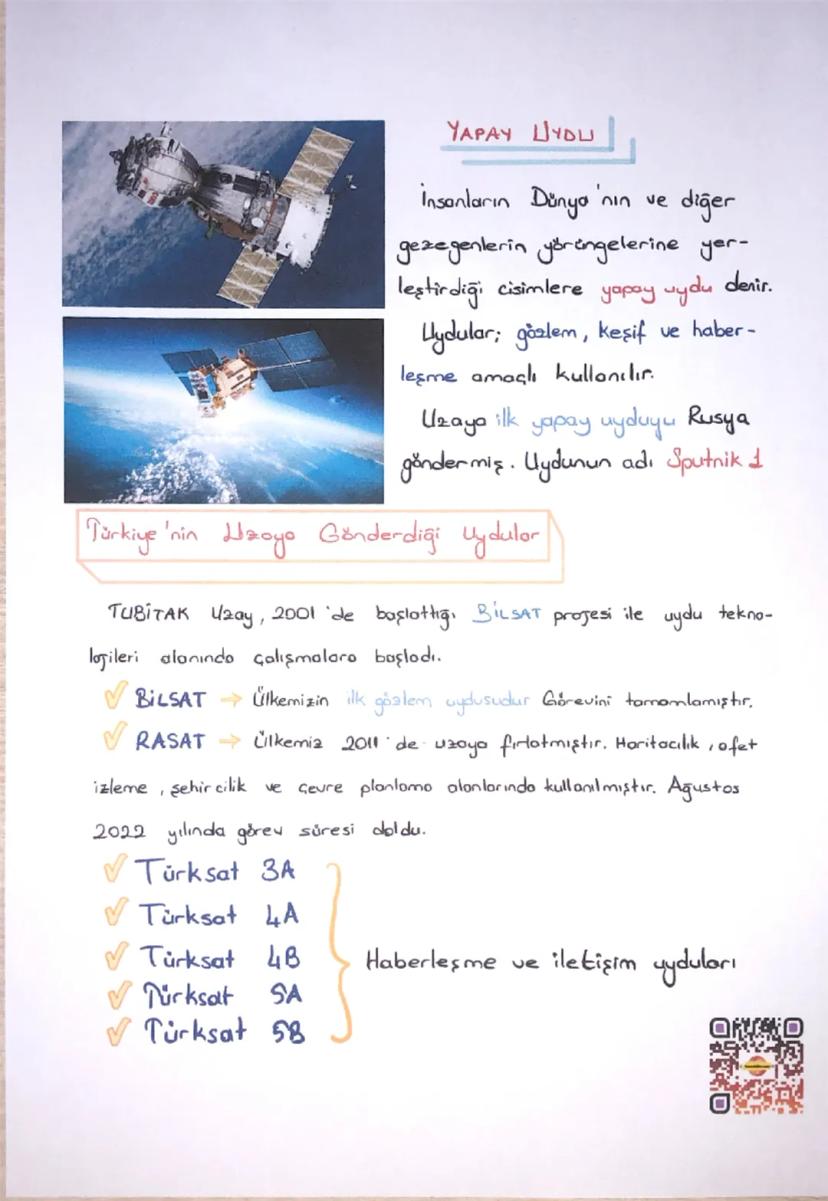 YAPAY UYDU
İnsanların Dünya'nın ve diğer
gezegenlerin yörüngelerine yer-
leştirdiği cisimlere yapay uydu denir.
Uydular; gözlem, keşif ve haber-
leşme amaçlı kullanılır.
Uzaya ilk yapay uyduyu Rusya
göndermiş. Uydunun adı Sputnik 1
Türkiye'nin Uzaya Gönderdiği Uydular
TUBİTAK Uzay, 2001'de başlattığı BİLSAT projesi ile uydu tekno-
lojileri alanında çalışmalara başladı.
✓ BİLSAT → Ülkemizin ilk gözlem uydusudur Görevini tamamlamıştır.
✓ RASAT → Ülkemiz 2011'de uzaya fırlatmıştır. Haritacılık, afet
izleme, şehircilik ve çevre planlama alanlarında kullanılmıştır. Ağustos
2022 yılında görev süresi doldu.
✓ Türksat 3A
✓ Türksat 4A
✓ Türksat 4B
✓ Türksat 5A
✓ Türksat 5B
Haberleşme ve iletişim uyduları